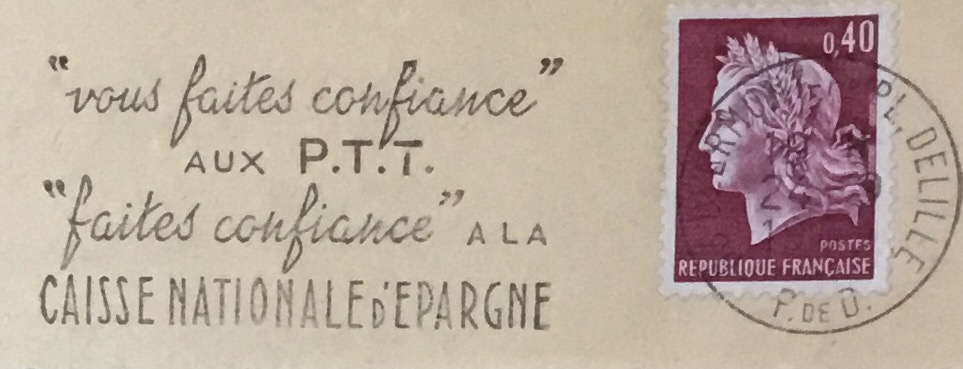 "vous faites confiance"
AUX P.T.T.
"faites confiance" A LA
CAISSE NATIONALE D'EPARGNE
0,40
POSTES
REPUBLIQUE FRANÇAISE
PL. DELILLE
P. DE D.